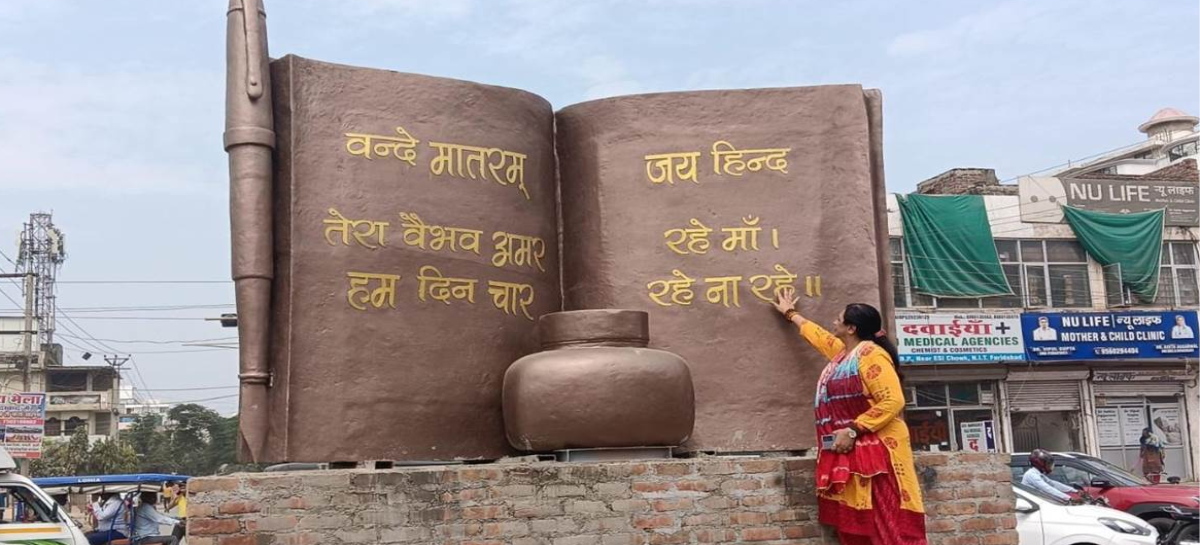 वन्दे मातरम्
तेरा वैभव अमर
हम दिन चार
जय हिन्द
रहे माँ।
रहे ना रहे॥
NU LIFE न्यू लाइफ
दवाईयाँ+
MEDICAL AGENCIES
CHEMIST & COSMETICS
Near ESI Chowk, N.I.T. Faridabad
NU LIFE | न्यू लाइफ
MOTHER & CHILD CLINIC